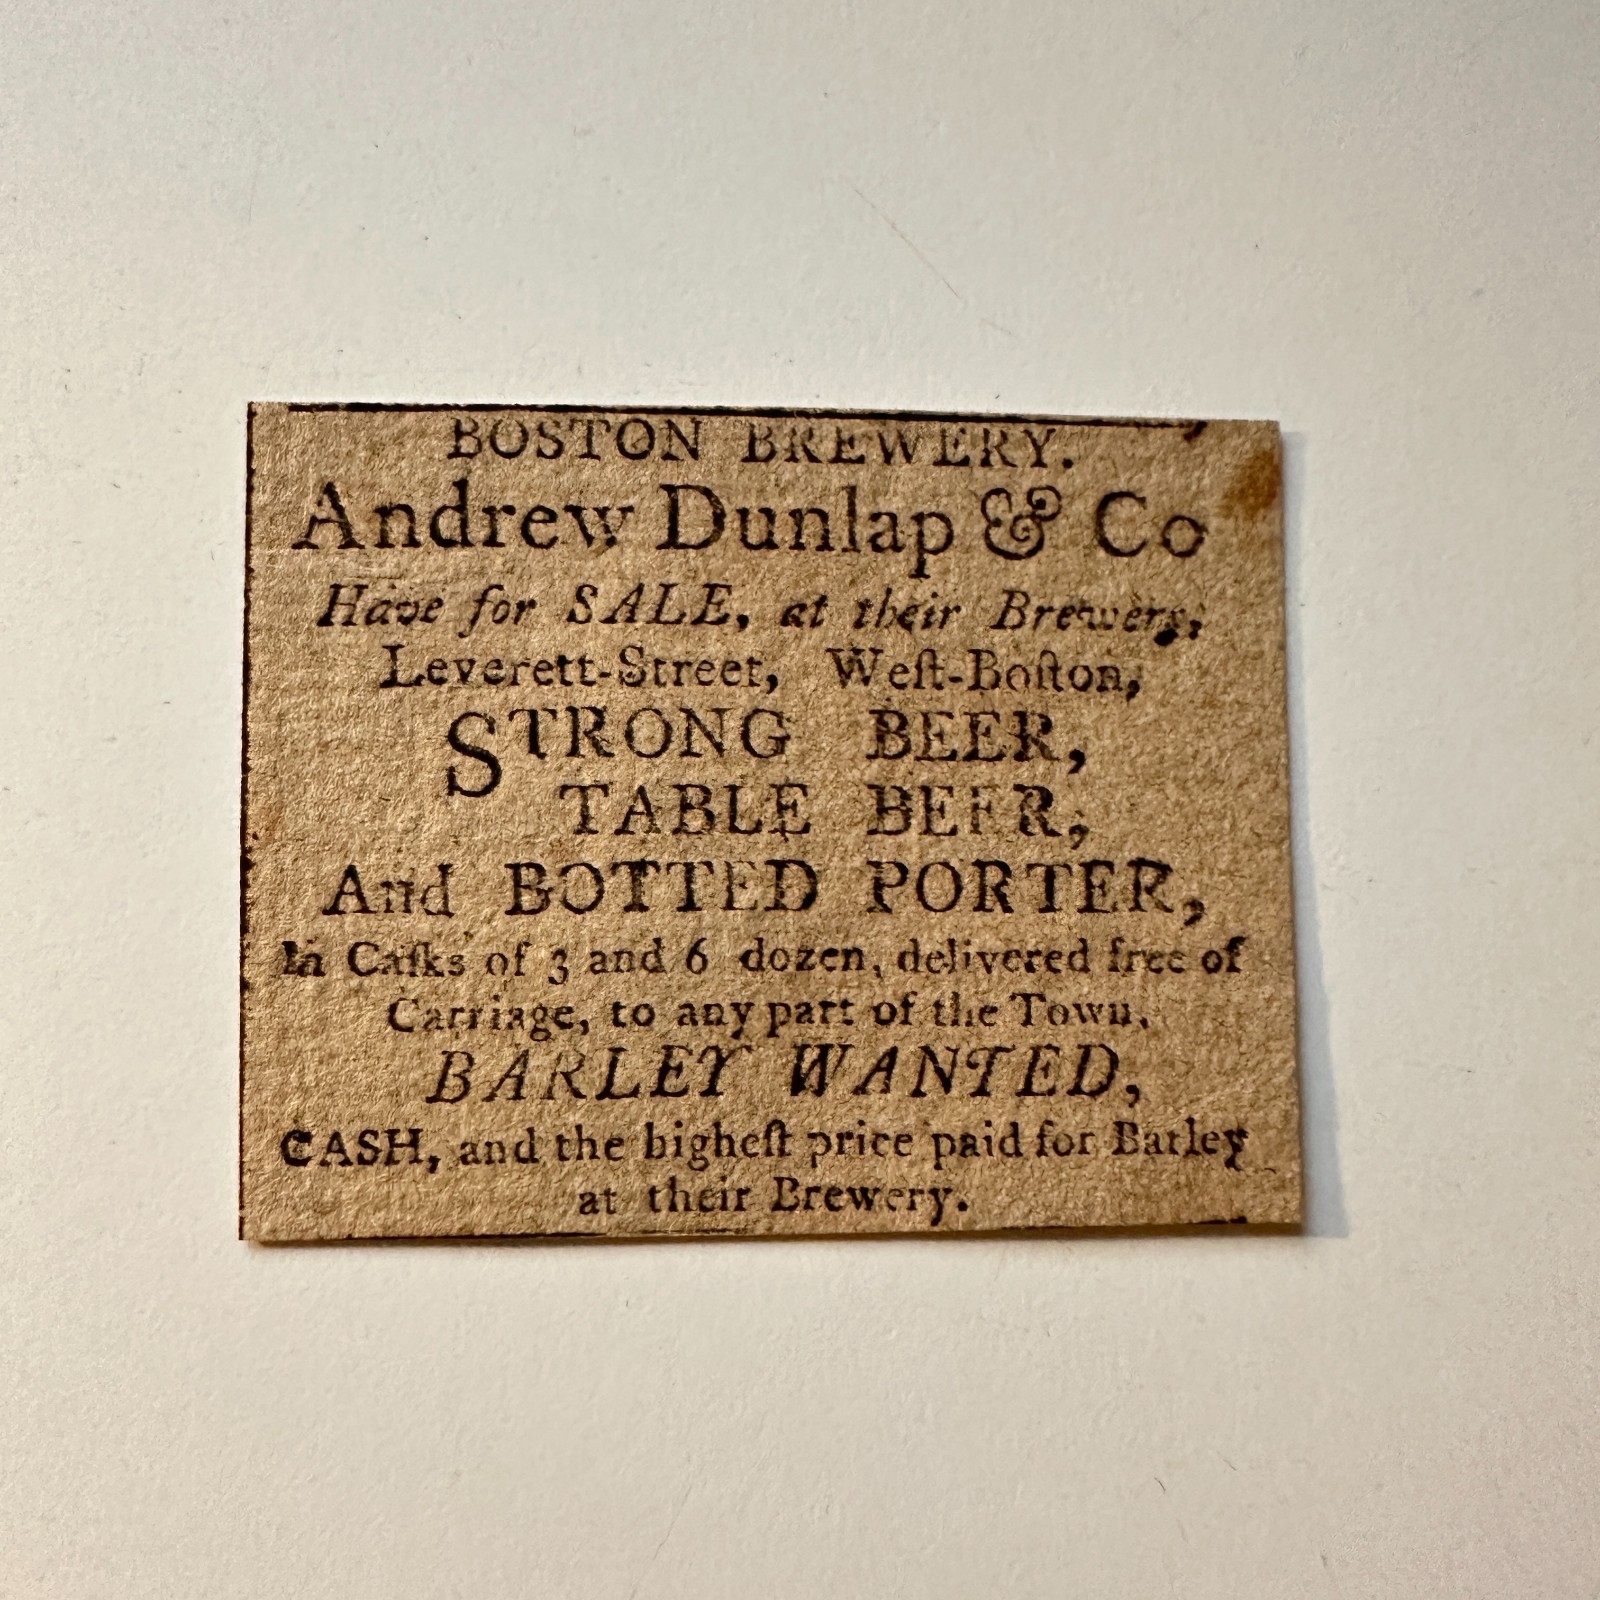 BOSTON BREWERY.
Andrew Dunlap & Co
Have for SALE, at their Brewery,
Leverett-Street, Weſt-Boſton,
STRONG BEER,
TABLE BEER,
And BOTTED PORTER,
In Caſks of 3 and 6 dozen, delivered free of
Carriage, to any part of the Town.
BARLEY WANTED,
CASH, and the higheſt price paid for Barley
at their Brewery.